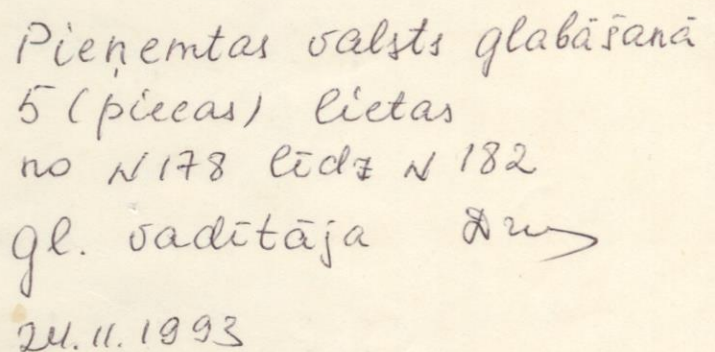 Pieņemtas valsts glabāšanā
5 (piecas) lietas
no N178 līdz N 182
gl. vadītāja
24.11.1993